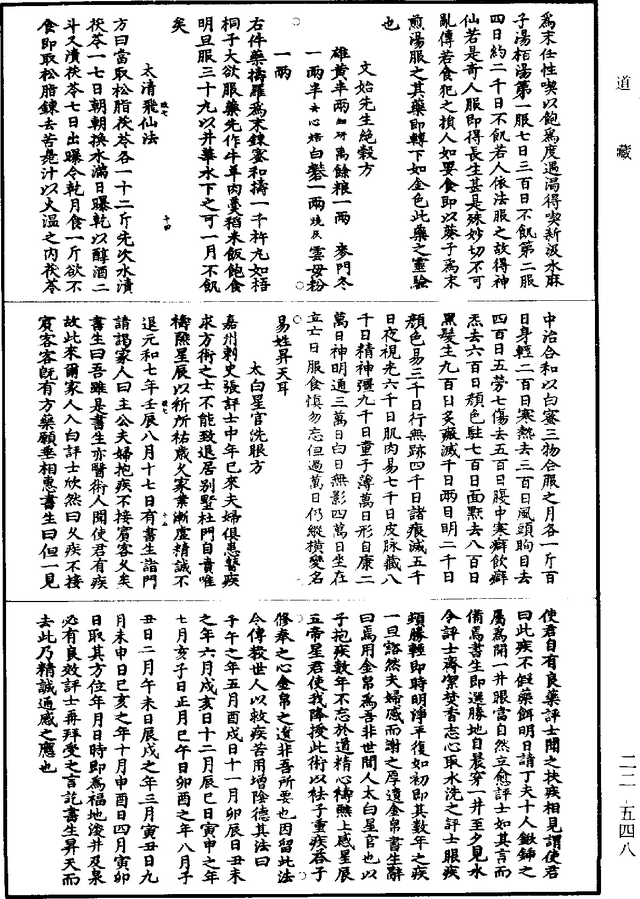 道藏
為末任性喫以飽為度過渴得喫新汲水麻
子湯栢湯第一服七日三百日不飢第二服
四日約二千日不飢若人依法服之故得神
仙若是奇人服即得長生甚是殊妙切不可
亂傳若食犯之損人如要食即以葵子為末
煎湯服之其藥即轉下如金色此藥之靈驗
也
文始先生絕穀方
雄黃半兩細研禹餘粮一兩 麥門冬
一兩半去心焙白礬一兩燒灰雲母粉
一兩
右件藥擣羅為末鍊蜜和擣一千杵丸如梧
桐子大欲服藥先作牛羊肉羹稻米飯飽食
明旦服三十丸以井華水下之可一月不飢
矣
太清飛仙法
方曰當取松脂茯苓各一十二斤先次水漬
茯苓一七日朝朝換水滿日曝乾以醇酒二
斗又漬茯苓七日出曝令乾月食一斤欲不
食即取松脂鍊去苦臭汁以火溫之内茯苓
中治合和以白蜜三物合服之月各一斤百
日身輕二百日寒熱去三百日風頭眴目去
四百日五勞七傷去五百日腹中寒癖飲癖
炁去六百日顏色駐七百日面䵟去八百日
黑髮生九百日炙瘢滅千日兩目明二千日
顏色易三千日行無跡四千日諸痕滅五千
日夜視光六千日肌肉易七千日皮脉藏八
千日精神彊九千日童子薄萬日形自康二
萬日神明通三萬日白日無影四萬日坐在
立亡日服食慎勿忘但過萬日仍縱橫變名
易姓昇天耳
太白星官洗眼方
嘉州刺史張評士中年已來夫婦俱患瞖疾
求方術之士不能致退居別墅杜門自責唯
禱醮星辰以祈所祐歲久家業漸虛精誠不
退元和七年壬辰八月十七日有書生詣門
請謁家人曰主公夫婦抱疾不接賓客久矣
書生曰吾雖是書生亦醫術人聞使君有疾
故此來爾家人入白評士欣然曰久疾不接
賓客客旣有方藥願垂相惠書生曰但一見
使君自有良藥評士聞之扶疾相見謂使君
曰此疾不假藥餌明日請丁夫十人鍬鍤之
屬為開一井眼當自然立愈評士如其言而
備焉書生即選勝地自晨穿一井至夕見水
令評士齋潔焚香志心取水洗之評士眼疾
頓勝輕即時明淨平復如初即其數年之疾
一旦豁然夫婦感而謝之厚遺金帛書生辭
曰焉用金帛為吾非世間人太白星官也以
子抱疾數年不忘於道精心禱醮上感星辰
五帝星君使我降授此術以袪子重疾荅子
修奉之心金帛之遺非吾所要也因留此法
令傳救世人以救疾苦用增陰德其法曰
子午之年五月酉戌日十一月卯辰日丑未
之年六月戌亥日十二月辰巳日寅申之年
七月亥子日正月巳午日卯酉之年八月子
丑日二月午未日辰戌之年三月寅丑日九
月未申日巳亥之年十月申酉日四月寅卯
日取其方位年月日時即為福地浚井及泉
必有良效評士再拜受之言訖書生昇天而
去此乃精誠通感之應也
二二·五四八